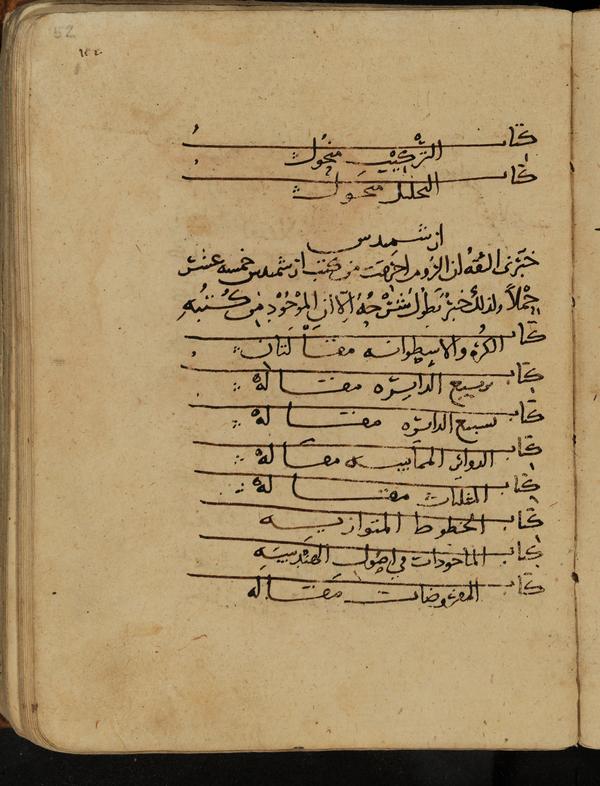 52
١٤٠
كتاب التركيب منحول
كتاب التحليل منحول
ارشميدس
خبرنى الثقه ان الروم احرقت من كتب ارشميدس خمسه عشر
حملاً ولذلك خبر يطول شرحه الا ان الموجود من كتبه
كتاب الكره والاسطوانه مقالتان
كتاب تربيع الدائره مقاله
كتاب تسبيع الدائره مقاله
كتاب الدوائر المماسه مقاله
كتاب المثلثات مقاله
كتاب الخطوط المتوازيه
كتاب الماخوذات في اصول الهندسه
كتاب المفروضات مقاله